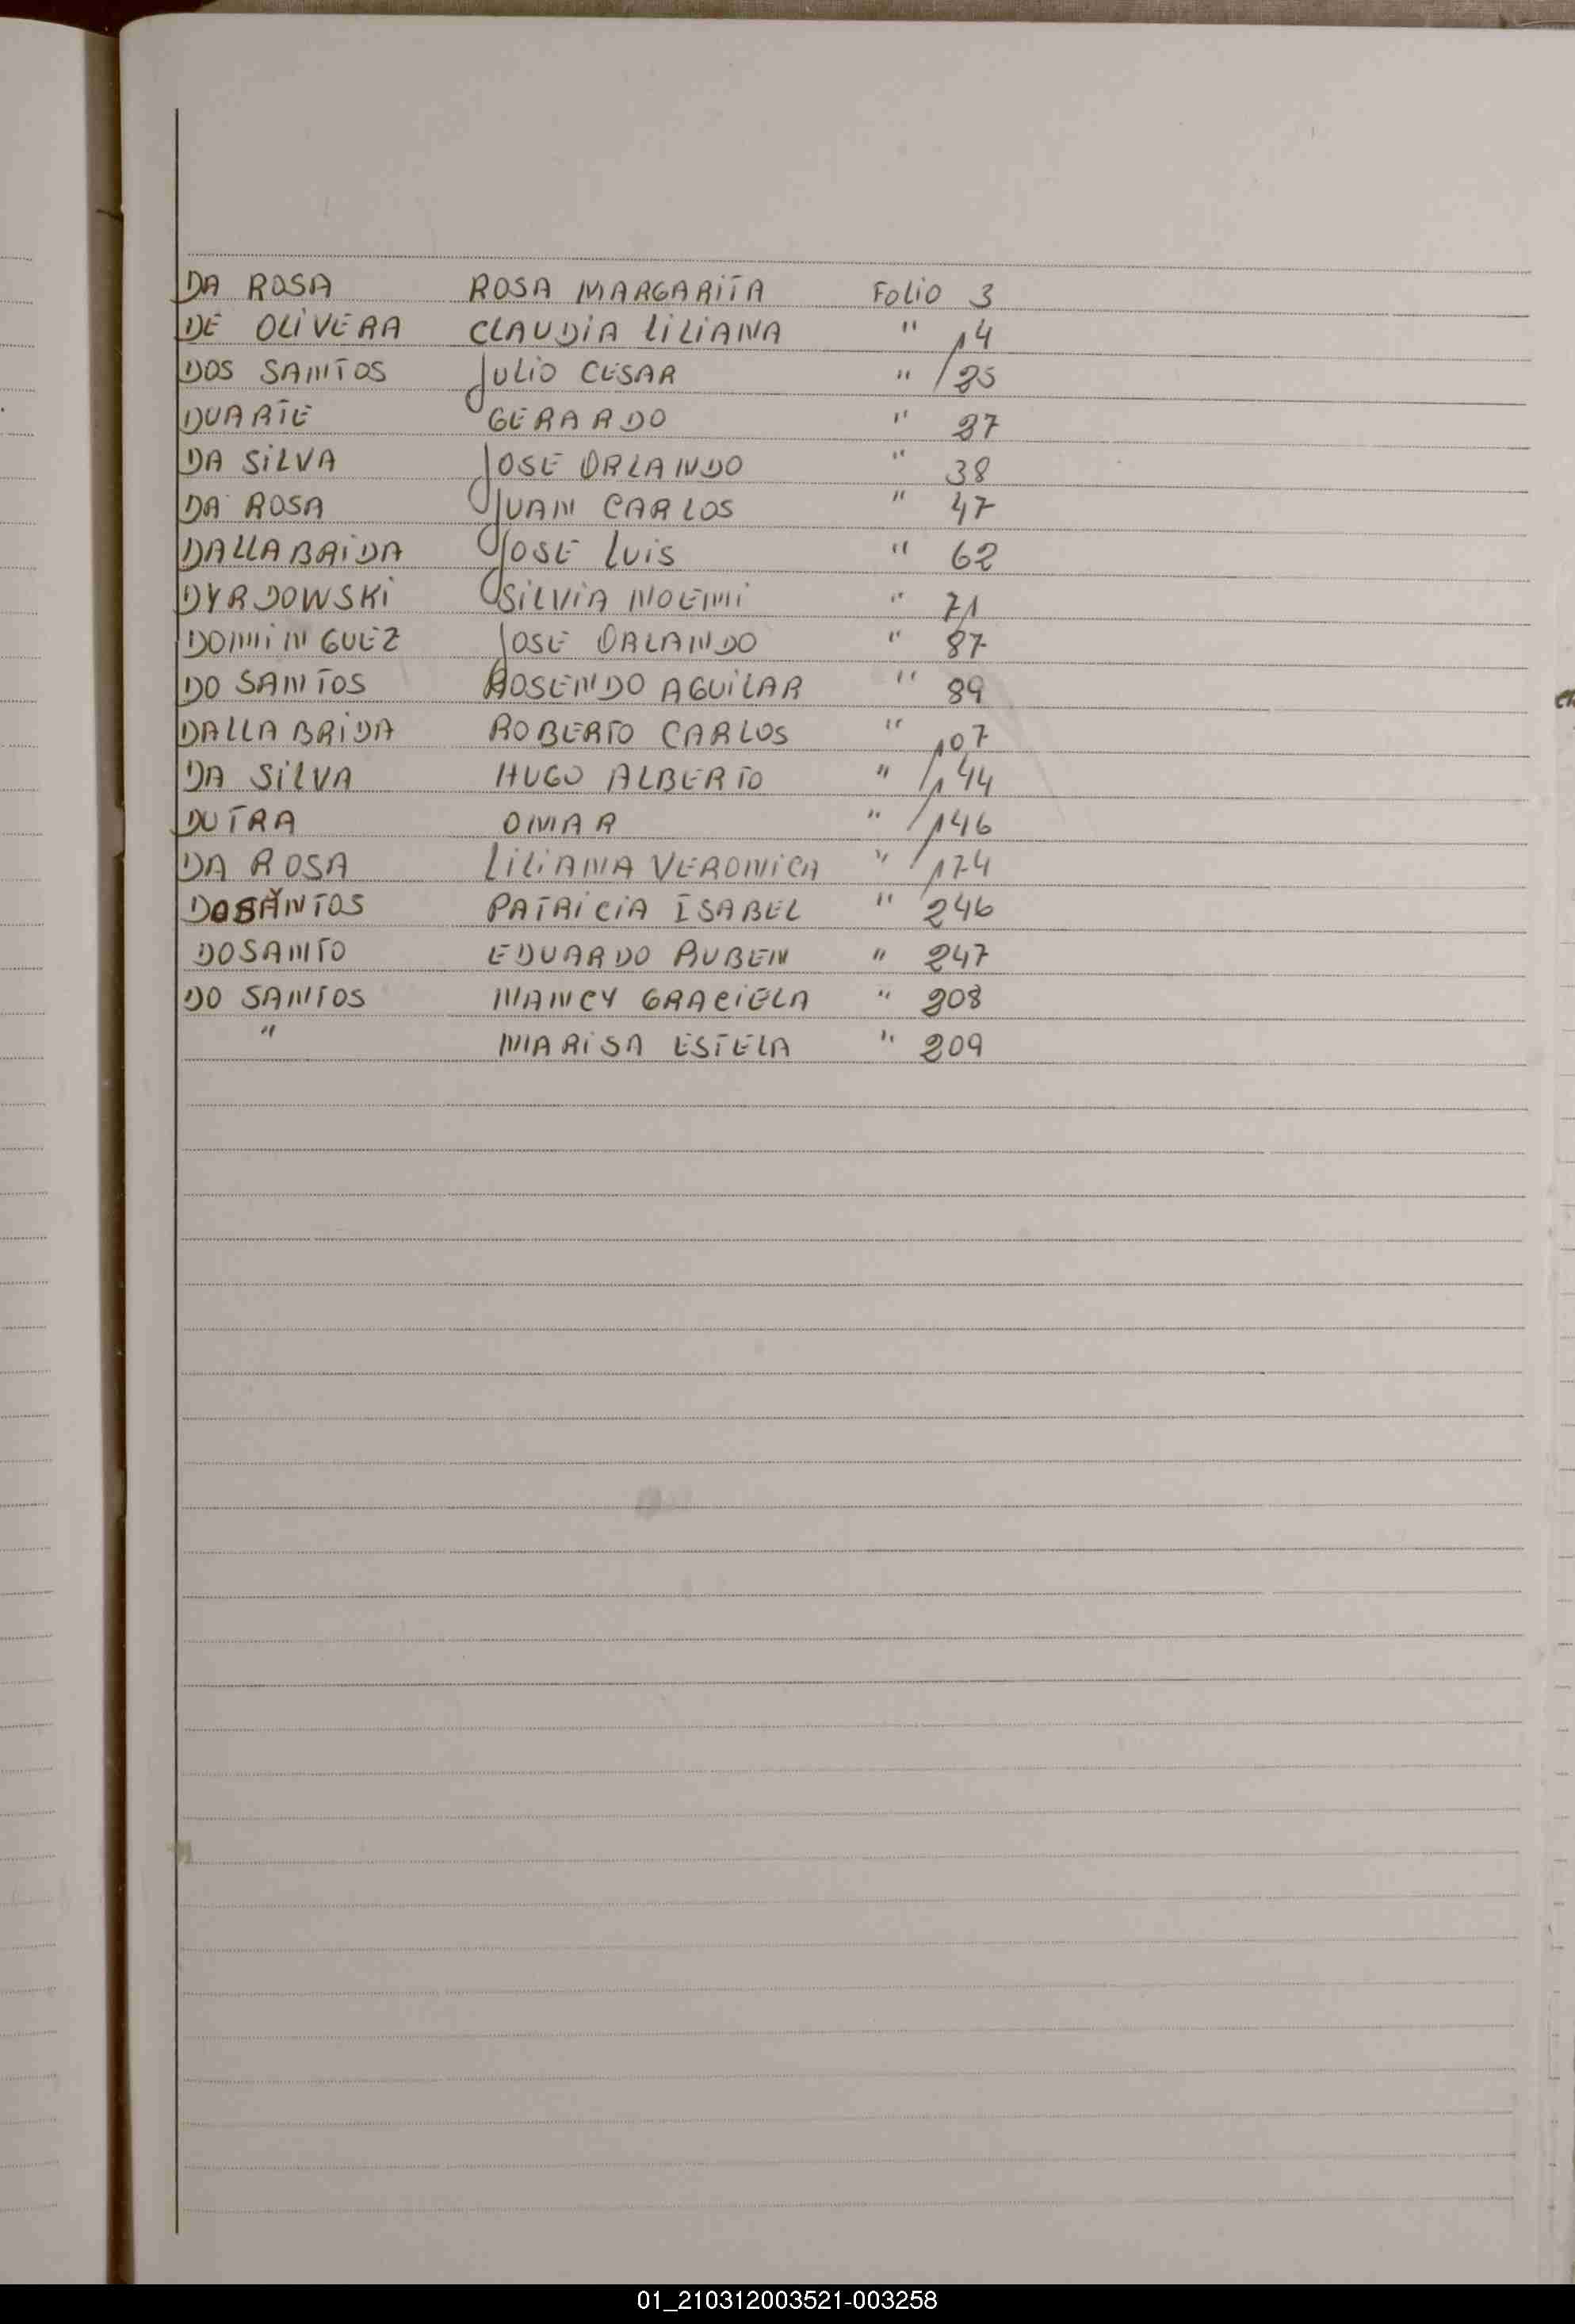 DA ROSA ROSA MARGARITA Folio 3
DE OLIVERA CLAUDIA LILIANA " 14
DOS SANTOS JULIO CESAR " 25
DUARTE GERARDO " 27
DA SILVA JOSE ORLANDO " 38
DA ROSA JUAN CARLOS " 47
DALLA BRIDA JOSE LUIS " 62
DYRDOWSKI SILVIA NOEMI " 71
DOMINGUEZ JOSE ORLANDO " 87
DO SANTOS ROSENDO AGUILAR " 89
DALLA BRIDA ROBERTO CARLOS " 107
DA SILVA HUGO ALBERTO " 144
DUTRA OMAR " 146
DA ROSA LILIANA VERONICA " 174
DOSANTOS PATRICIA ISABEL " 246
DOSANTO EDUARDO RUBEN " 247
DO SANTOS NANCY GRACIELA " 208
" MARISA ESTELA " 209
01_210312003521-003258